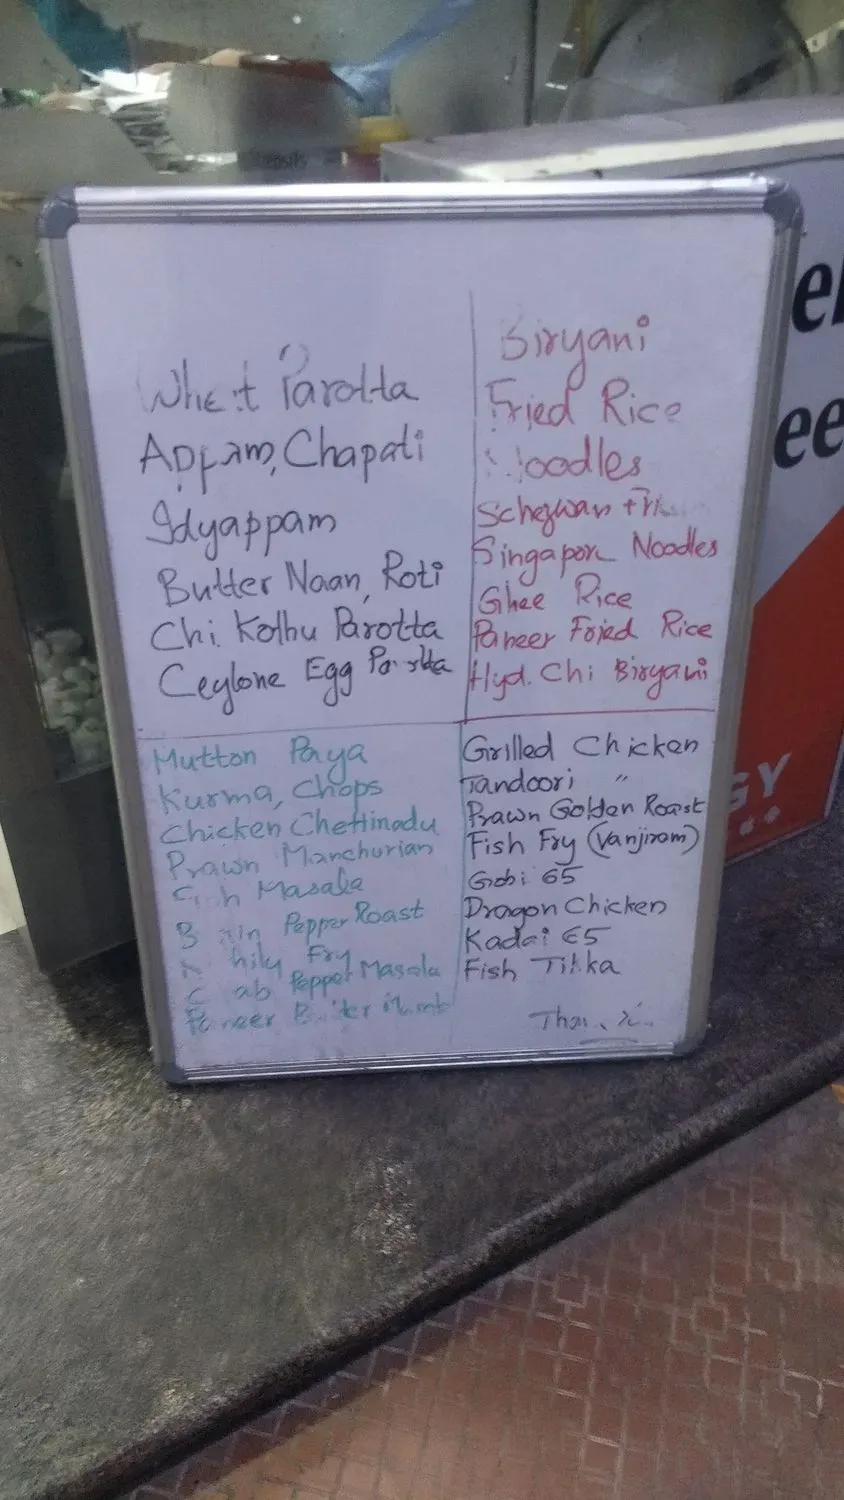 Wheat Parotta
Appam, Chapati
Idyappam
Butter Naan, Roti
Chi. Kothu Parotta
Ceylone Egg Parotta
Biryani
Fried Rice
Noodles
Schezwan
Singapore Noodles
Ghee Rice
Paneer Fried Rice
Hyd. Chi Biryani
Mutton Paya
Kurma, Chops
Chicken Chettinadu
Prawn Manchurian
Fish Masala
Brain Pepper Roast
Fry
Crab Pepper Masala
Paneer Butter
Grilled Chicken
Tandoori "
Prawn Golden Roast
Fish Fry (Vanjiram)
Gobi 65
Dragon Chicken
Kadai 65
Fish Tikka
ee
GY